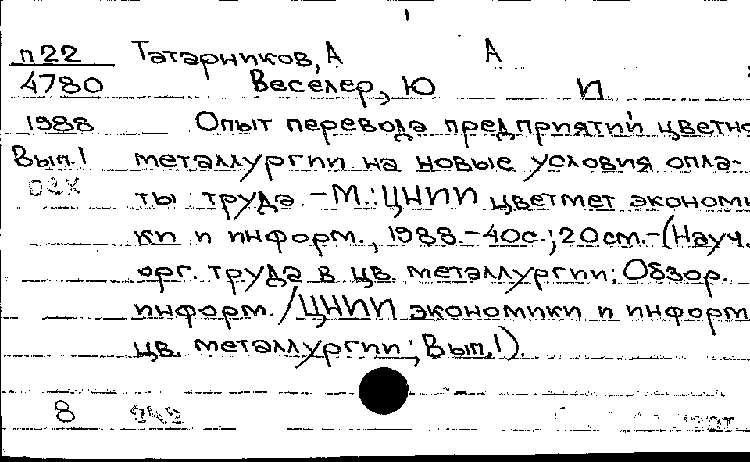 п22 Татарников, А А
4780 Веселер, Ю И
1988 Опыт перевода предприятий цветно
Вып.1 металлургии на новые условия опла-
ты труда. - М.: ЦНИИ цветмет эконом
ки и информ., 1988. - 40с.; 20см. - (Науч.
орг. труда в цв. металлургии: Обзор.
информ. / ЦНИИ экономики и информ
цв. металлургии; Вып.1).
8